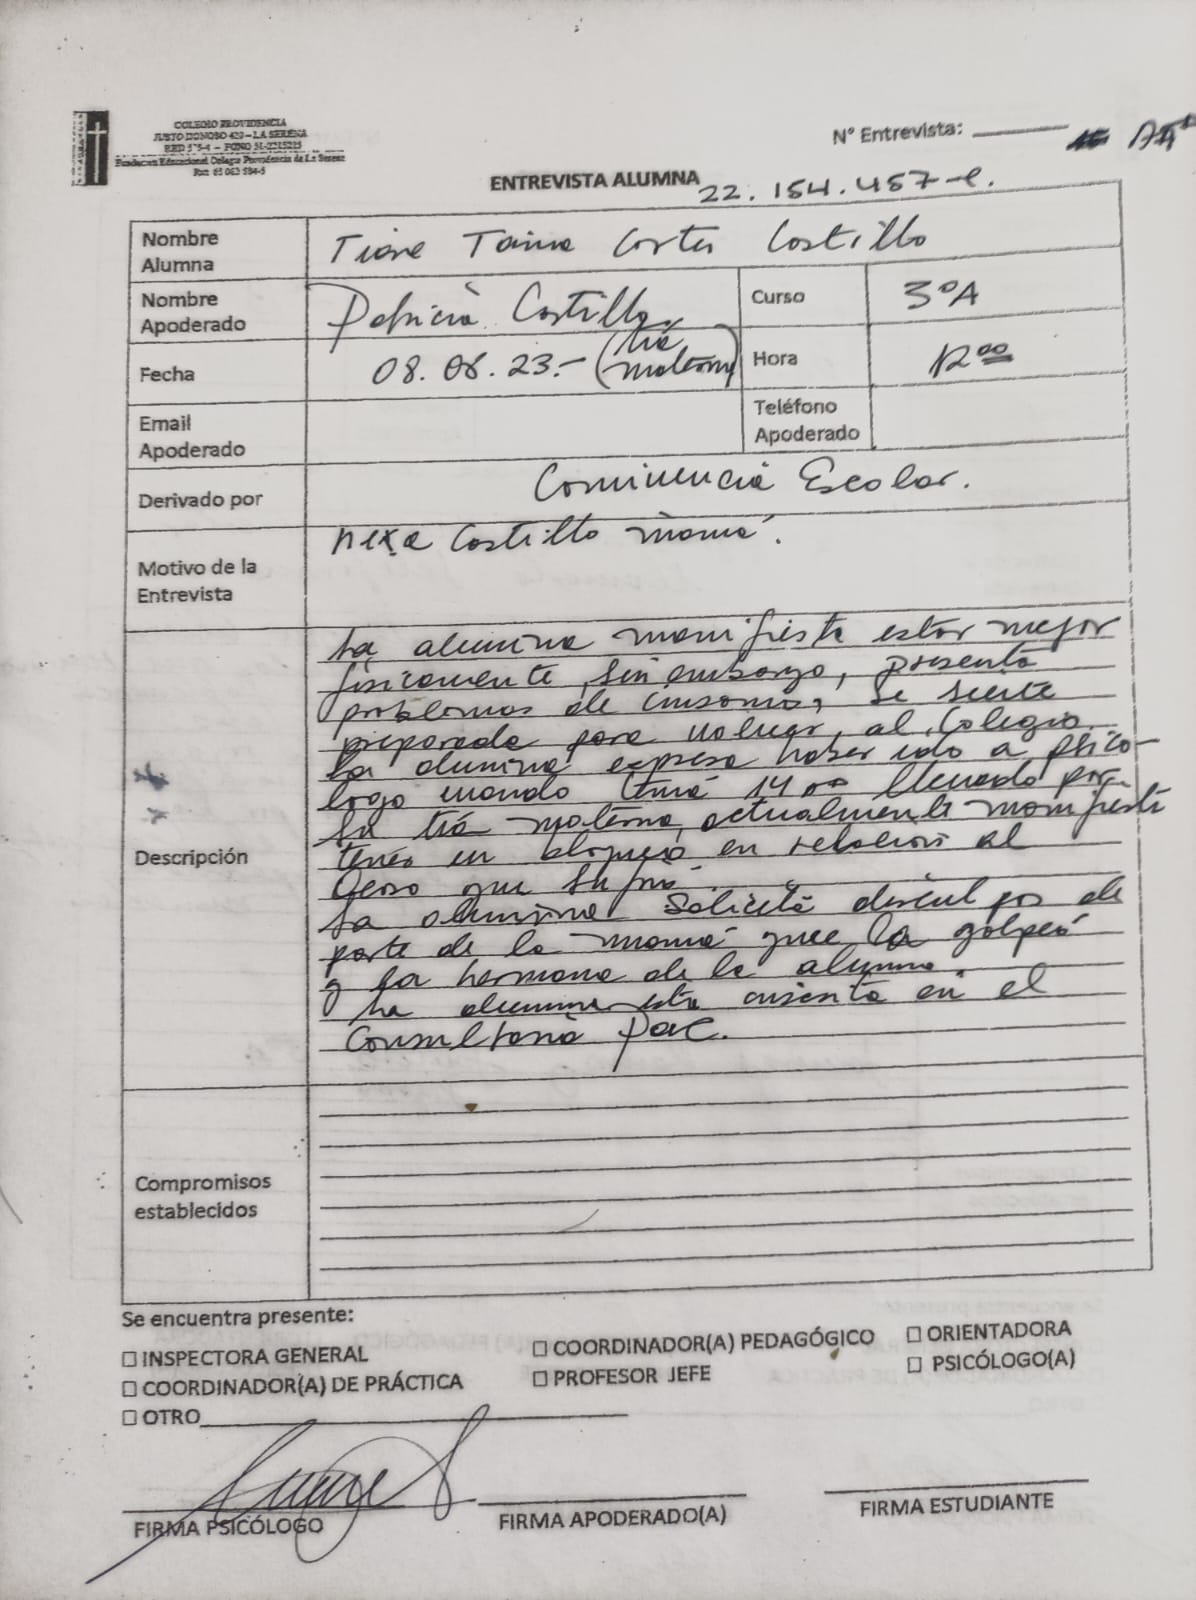 COLEGIO PROVIDENCIA
JUSTO DONOSO 420 – LA SERENA
RBD 575-4 – FONO 51-2215225
Fundacion Educacional Colegio Providencia de La Serena
Nº Entrevista:
ENTREVISTA ALUMNA
22.154.457-
Nombre Alumna Tiare Cortes Castillo
Nombre Apoderado Patricia Castillo.
Curso 3ºA
Fecha 08.06.23.- (tía materna)
Hora 12ºº
Email Apoderado
Teléfono Apoderado
Derivado por Convivencia Escolar.
Motivo de la Entrevista Castillo mamá.
Descripción
La alumna manifiesta estar mejor
fisicamente, sin embargo, presenta
problemas de insomnio, se siente
preparada para volver al Colegio.
La alumna expresa haber ido a psico-
logo cuando tenía 14 llevada por
su tía materna, actualmente manifiesta
tener un bloqueo en relación al
que sufrió.
La alumna solicita disculpas de
parte de la mamá que la golpeó
y la hermana de la alumna.
La alumna esta inscrita en el
Consultorio
Compromisos establecidos
Se encuentra presente:
☐ INSPECTORA GENERAL ☐ COORDINADOR(A) PEDAGÓGICO ☐ ORIENTADORA
☐ COORDINADOR(A) DE PRÁCTICA ☐ PROFESOR JEFE ☐ PSICÓLOGO(A)
☐ OTRO
FIRMA PSICÓLOGO FIRMA APODERADO(A) FIRMA ESTUDIANTE